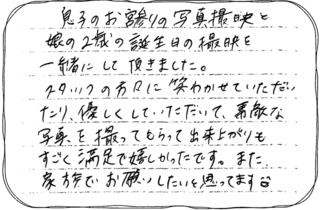 息子のお宮参りの写真撮映と
娘の2歳の誕生日の撮映を
一緒にして頂きました。
スタッフの方々に笑わかせていただい
たり、優しくしていただいて、素敵な
写真を撮ってもらって出来上がりも
すごく満足で嬉しかったです。また
家族でお願いしたいと思ってます